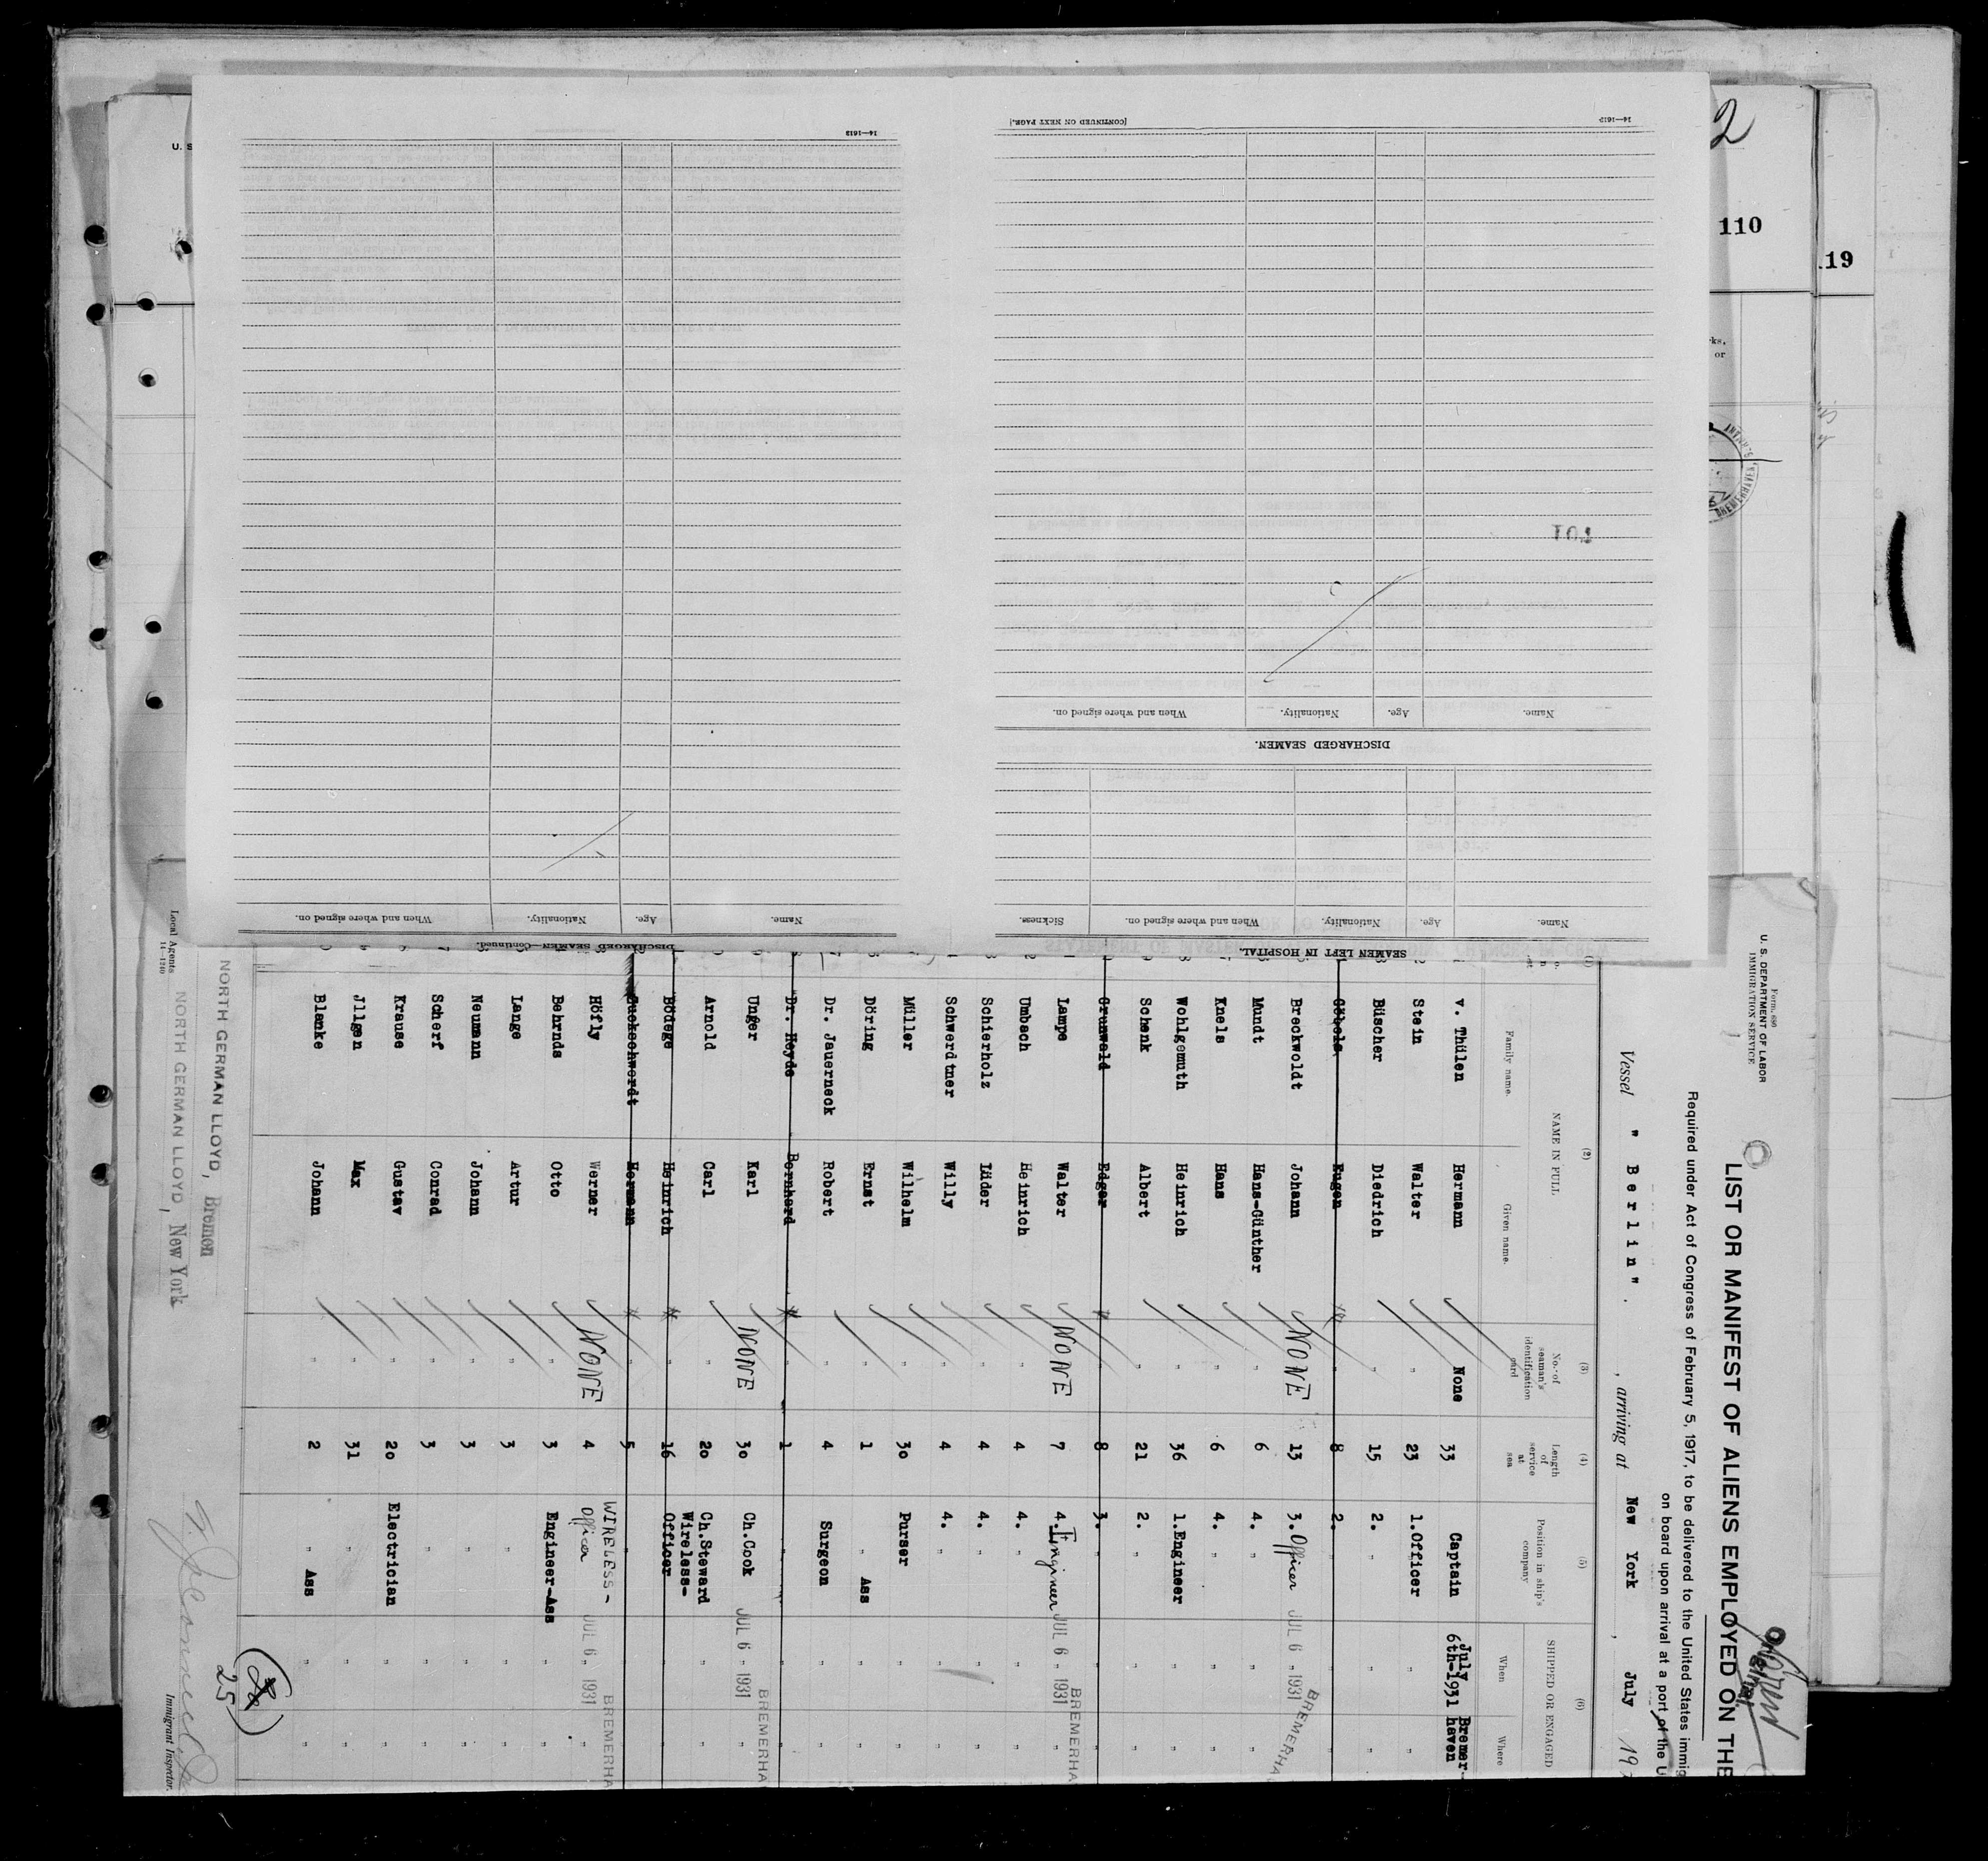 Form 680
U. S. DEPARTMENT OF LABOR
IMMIGRATION SERVICE
LIST OR MANIFEST OF ALIENS EMPLOYED ON THE
Required under Act of Congress of February 5, 1917, to be delivered to the United States immig
on board upon arrival at a port of the U
Vessel " Berlin " . , arriving at New York , July 19
(2) (3) (4) (5) (6)
NAME IN FULL No. of seaman's identification card Length of service at sea Position in ship's company SHIPPED OR ENGAGED
Family name. Given name. When Where
v. Thülen Hermann None 33 Captain July 6th-1931 Bremer-haven
Stein Walter " 23 1.Officer " "
Büscher Diedrich " 15 2. " " "
Göbels Eugen " 8 2. " " "
Breckwoldt Johann NONE 13 3. Officer JUL 6 1931 BREMERHA
Mundt Hans-Günther " 6 4. " " "
Knels Hans " 6 4. " " "
Wohlgemuth Heinrich " 36 1.Engineer " "
Schenk Albert " 21 2. " " "
Grunwald Edgar " 8 3. " " "
Lampe Walter NONE 7 4. Engineer JUL 6 1931 BREMERHA
Umbach Heinrich " 4 4. " " "
Schierholz Lüder " 4 4. " " "
Schwerdtner Willy " 4 4. " " "
Müller Wilhelm " 30 Purser " "
Döring Ernst " 1 " Ass " "
Dr. Jauerneck Robert " 4 Surgeon " "
Dr. Heyde Bernhard " 1 " " "
Unger Karl NONE 30 Ch.Cook JUL 6 1931 BREMERHA
Arnold Carl " 20 Ch.Steward " "
Bödege Heinrich " 16 Wireless-Officer " "
Hermann 5 "
Höfly Werner NONE 4 WIRELESS-Officer JUL 6 1931 BREMERHA
Behrnds Otto " 3 Engineer-Ass " "
Lange Artur " 3 " " "
Neumann Johann " 3 " " "
Scherf Conrad " 3 " " "
Krause Gustav " 20 Electrician " "
Jllgen Max " 31 " " "
Blanke Johann " 2 " Ass " "
NORTH GERMAN LLOYD, Bremen
NORTH GERMAN LLOYD, New York
Local Agents
14—1240
25
Immigrant Inspector.
SEAMEN LEFT IN HOSPITAL.
Name. Age. Nationality. When and where signed on. Sickness.
DISCHARGED SEAMEN.
Name. Age. Nationality. When and where signed on.
101
14—1613
[CONTINUED ON NEXT PAGE.]
DISCHARGED SEAMEN—Continued.
Name. Age. Nationality. When and where signed on.
14—1613
U. S
2
110
19
ks,
or